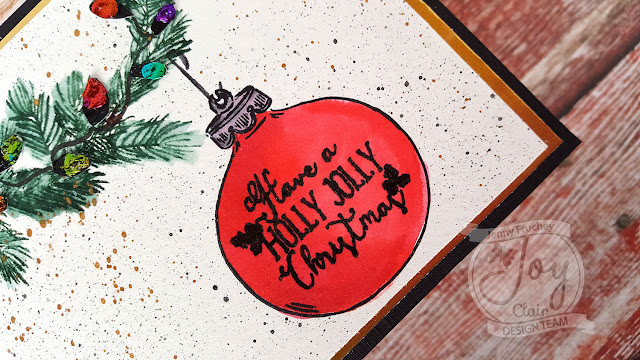 Have a
HOLLY JOLLY
Christmas
Jenny Fruchey
Joy
Clair
DESIGN TEAM